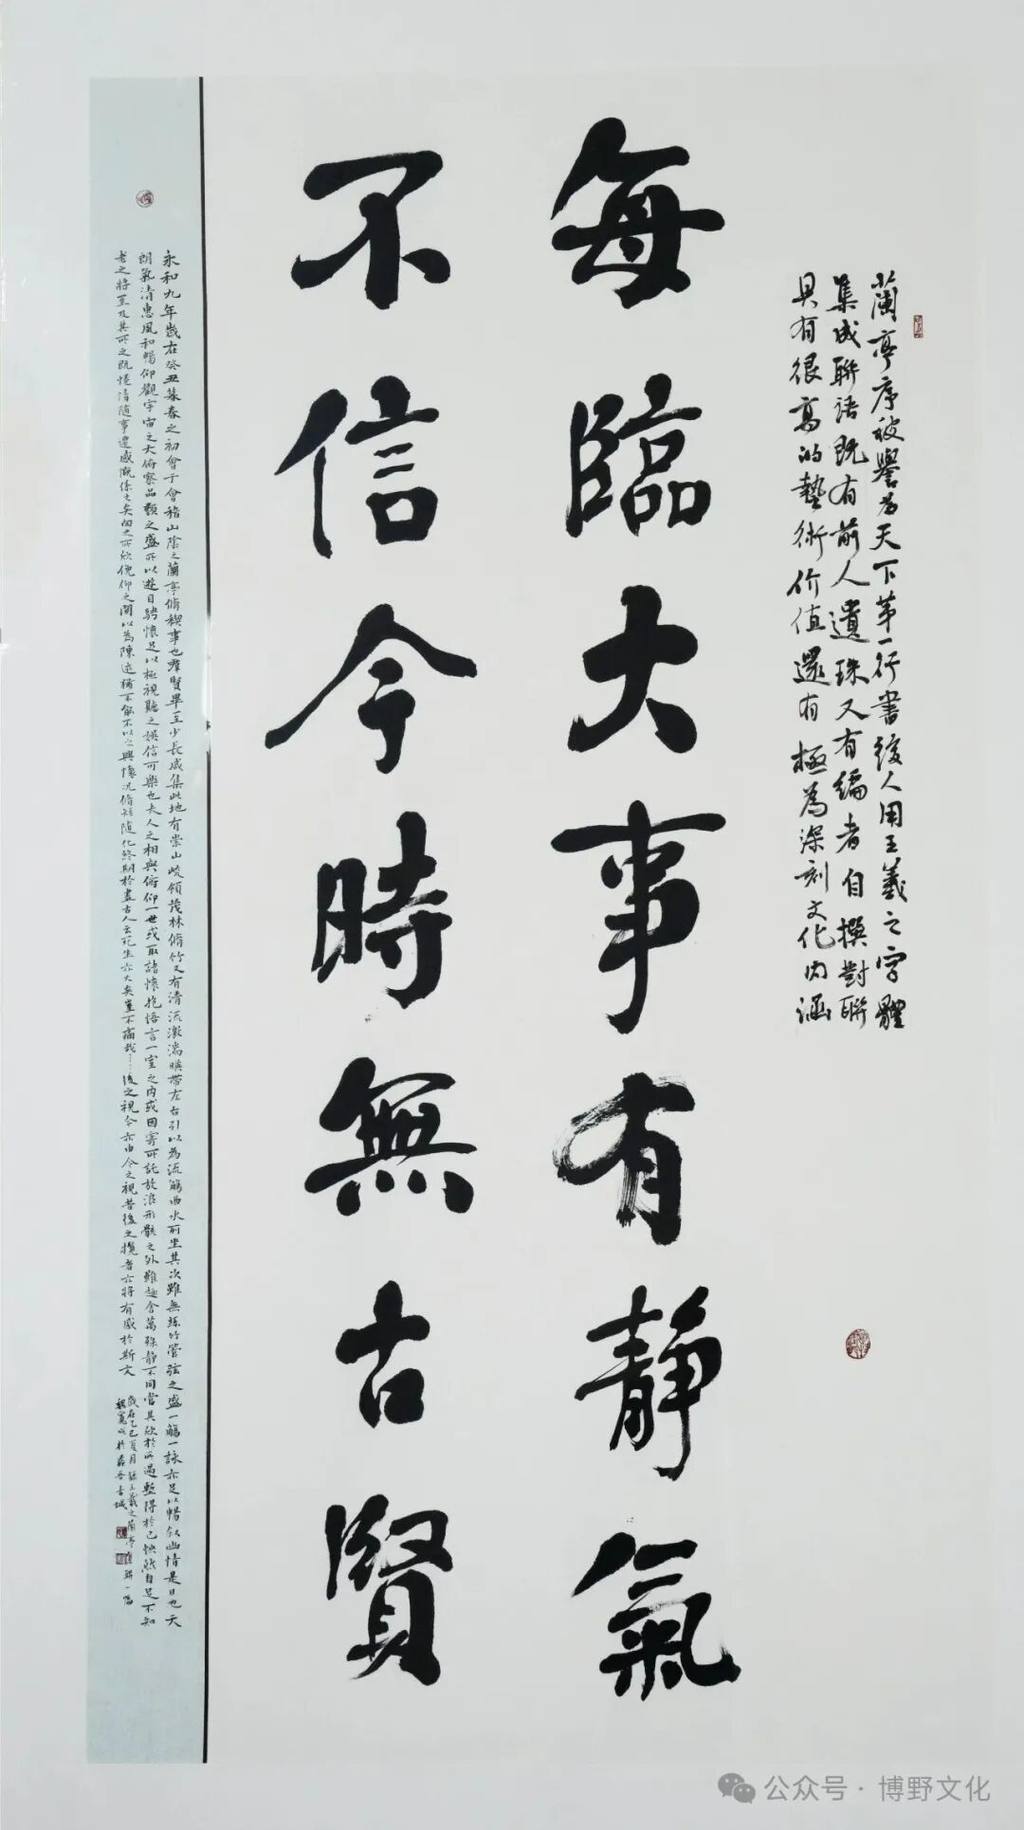 蘭亭序被譽为天下苐一行書後人用王羲之字體
集成聯語既有前人遺珠又有編者自撰對聯
具有很高的藝術价值還有極為深刻文化内涵
每臨大事有靜氣
不信今時無古賢
永和九年歲在癸丑暮春之初會于會稽山陰之蘭亭脩禊事也羣賢畢至少長咸集此地有崇山峻領茂林脩竹又有清流激湍暎帶左右引以為流觴曲水列坐其次雖無絲竹管弦之盛一觴一詠亦足以暢叙幽情是日也天
朗氣清惠風和暢仰觀宇宙之大俯察品類之盛所以遊目騁懷足以極視聽之娛信可樂也夫人之相與俯仰一世或取諸懷抱悟言一室之内或因寄所託放浪形骸之外雖趣舍萬殊靜不同當其欣於所遇暫得於己快然自足不知
老之將至及其所之既惓情隨事遷感慨係之矣向之所欣俛仰之間以為陳迹猶不能不以之興懷況脩短隨化終期於盡古人云死生亦大矣豈不痛哉……後之視今亦由今之視昔後之攬者亦將有感於斯文
歲在乙巳夏月 王羲之蘭亭序聯一幅
書城
公众号·博野文化